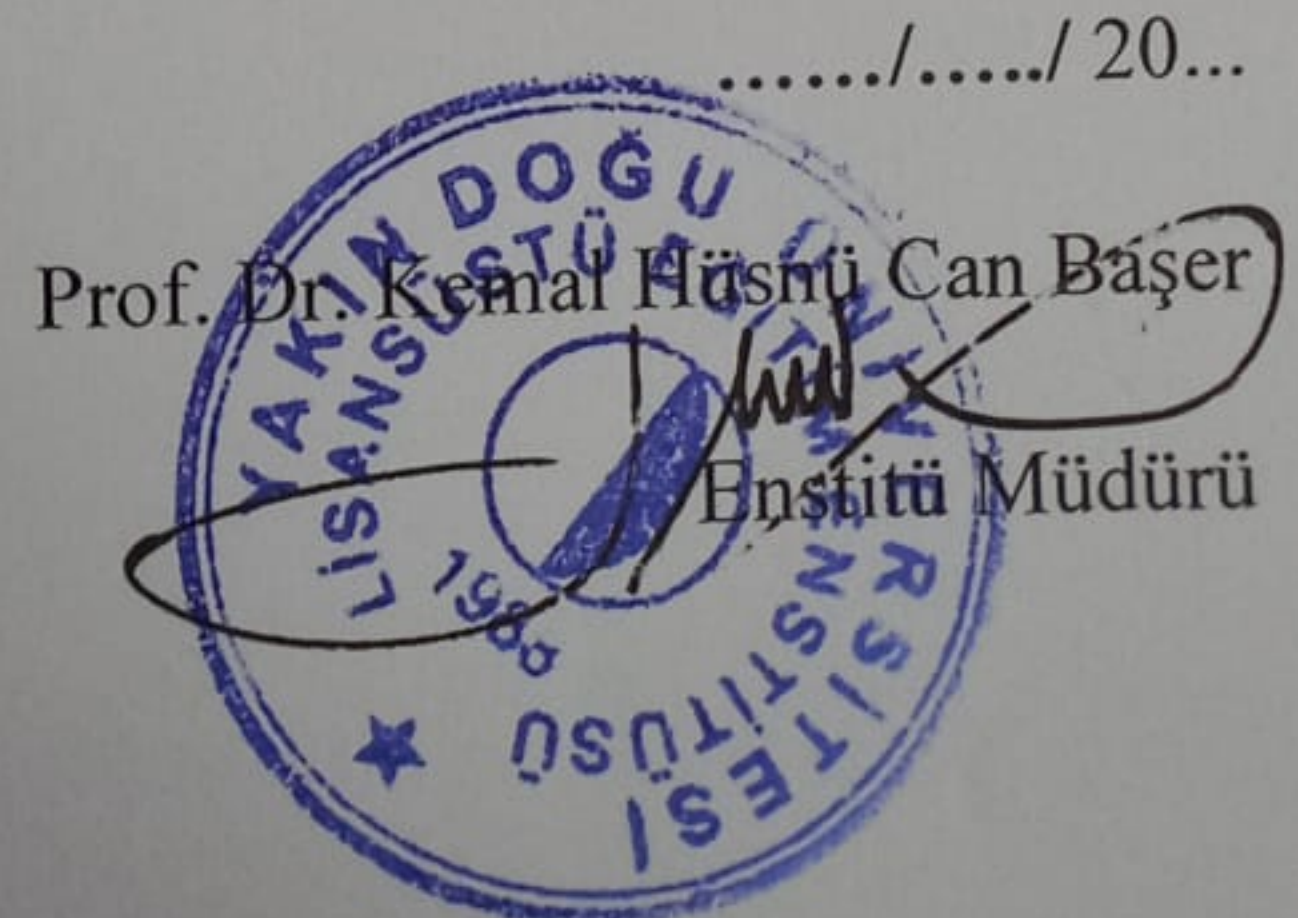 ....../...../ 20...
Prof. Dr. Kemal Hüsnü Can Başer
Enstitü Müdürü
YAKIN DOĞU ÜNİVERSİTESİ
LİSANSÜSTÜ EĞİTİM ENSTİTÜSÜ
1988